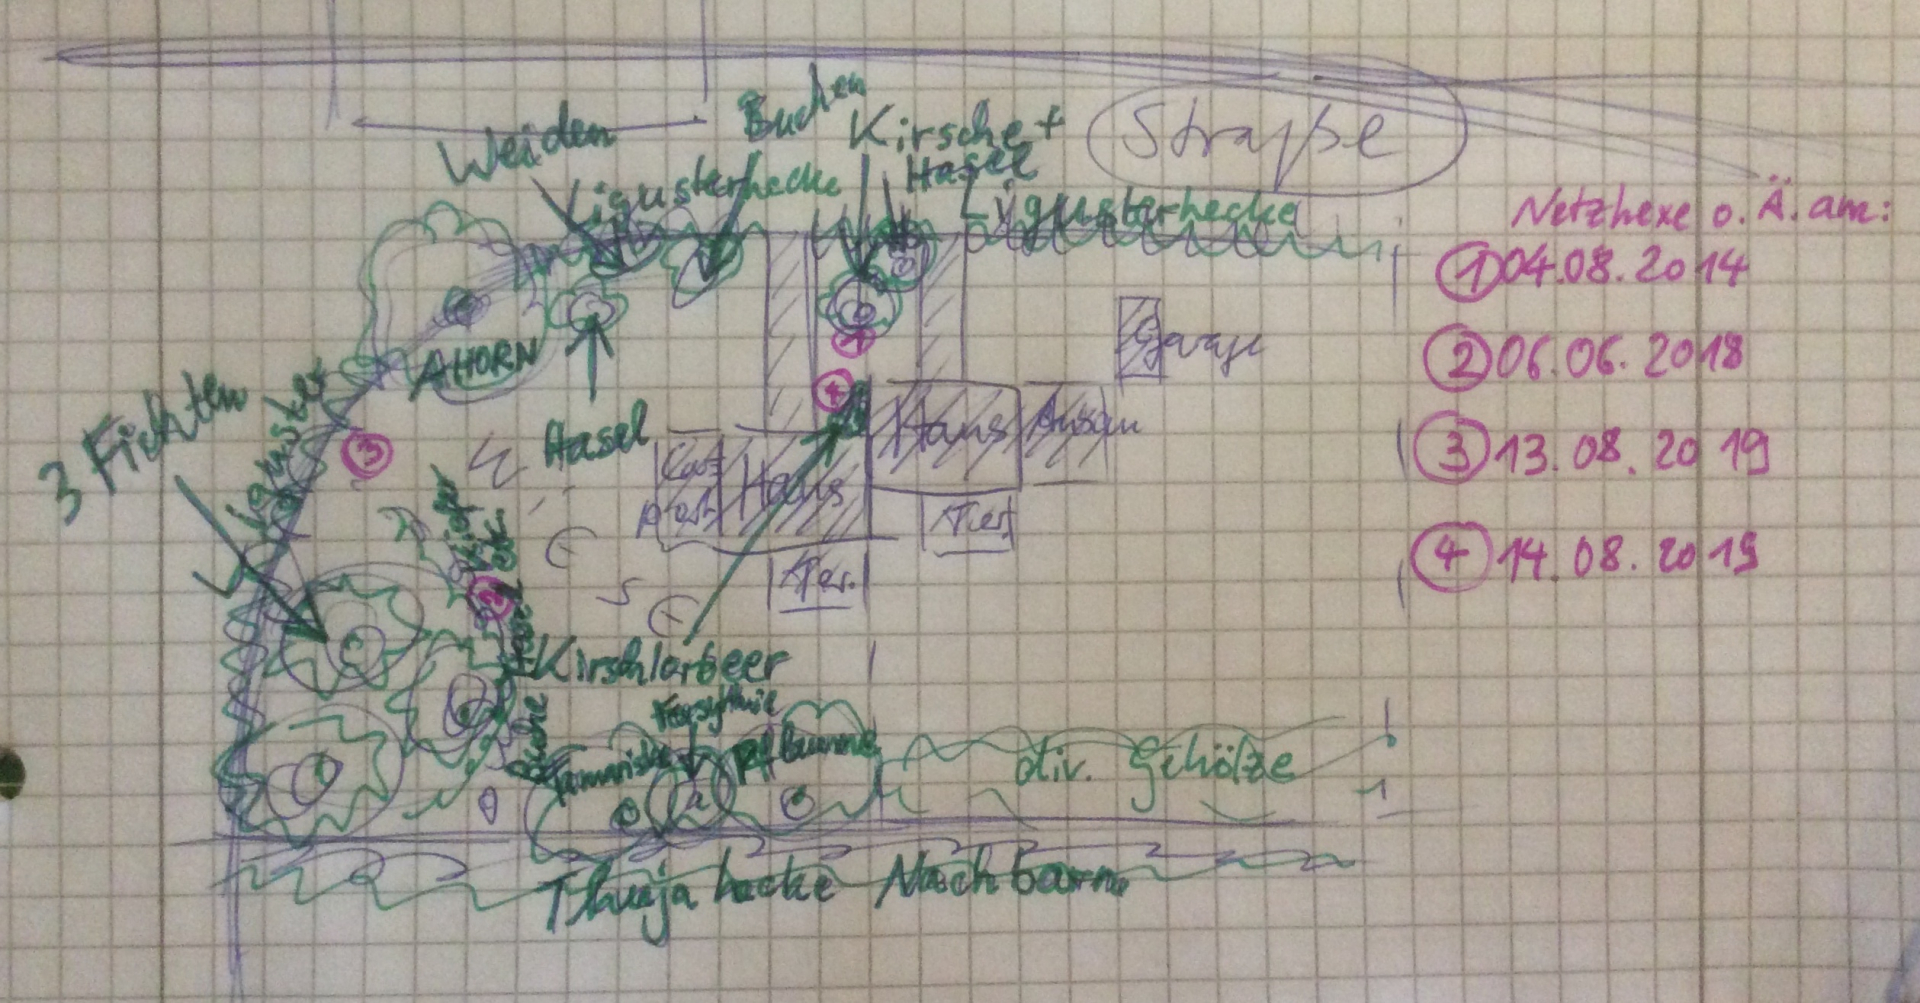 Weiden
Buchen
Kirsche +
Hasel
Straße
Ligusterhecke
Ligusterhecke
Netzhexe o. Ä. am:
① 04.08.2014
② 06.06.2018
③ 13.08.2019
④ 14.08.2019
AHORN
Garage
3 Fichten
Liguster
Hasel
③
1
4
Haus
Anbau
Haus
Terr.
Terr.
2
Kirschlorbeer
Forsythie
Tamariske
Pflaume
div. Gehölze
Thuja hecke Nachbarn